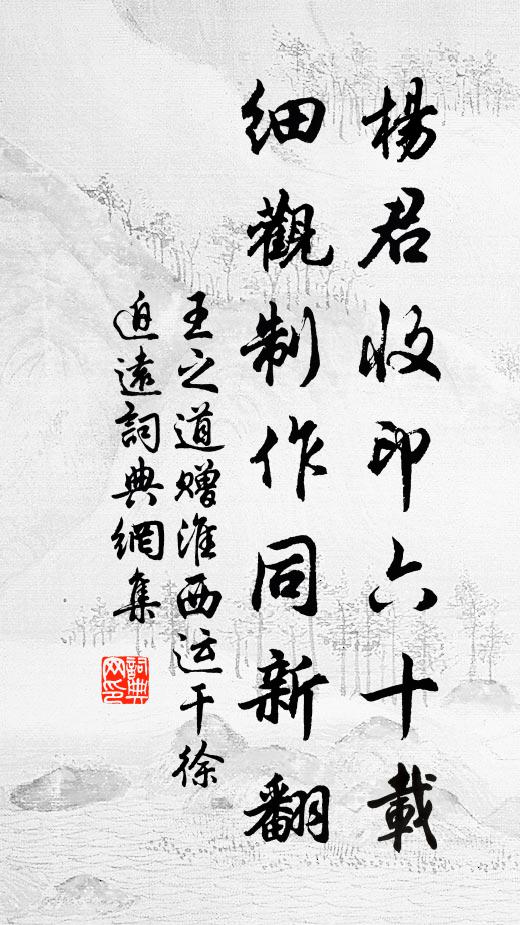 楊君收印六十載
細觀制作同新翻
王之道贈淮西运干徐
迫遠詞典網集
詞典
网印